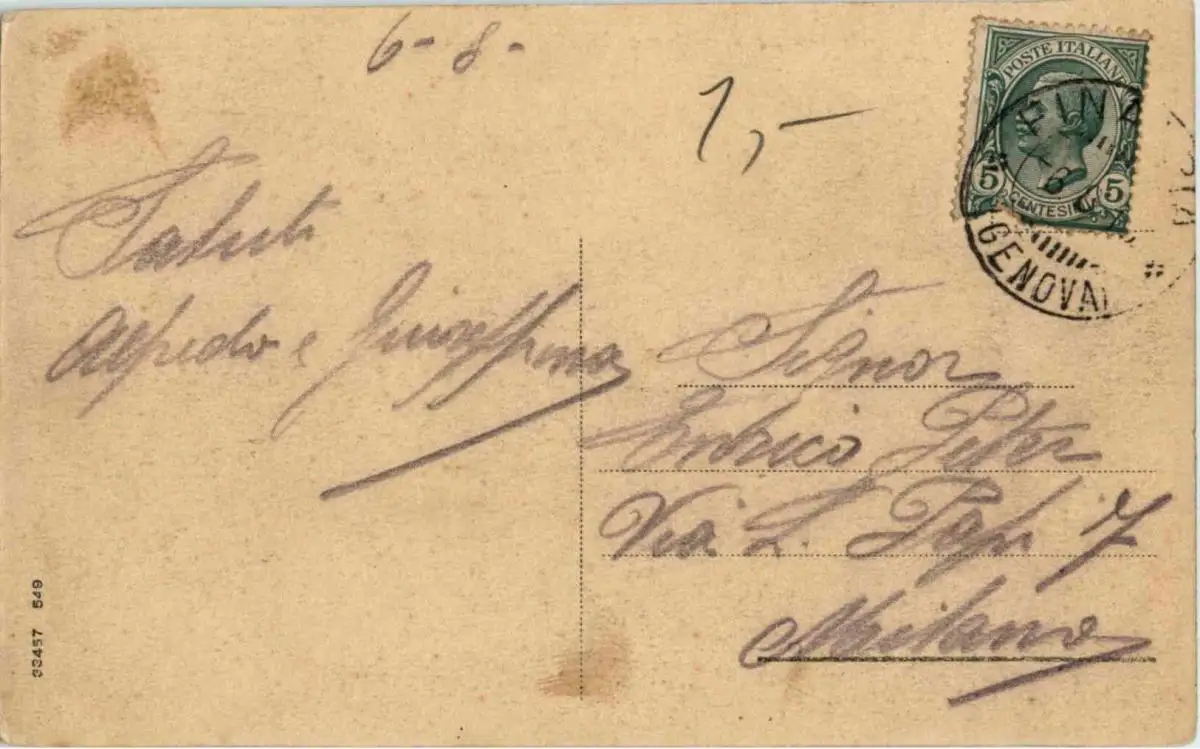 6-8-
1,-
POSTE ITALIANE
5 5
CENTESIMI
GENOVA
Saluti
Alfredo e Giuseppina
Signor
Enrico
Via 7
Milano
33457 549